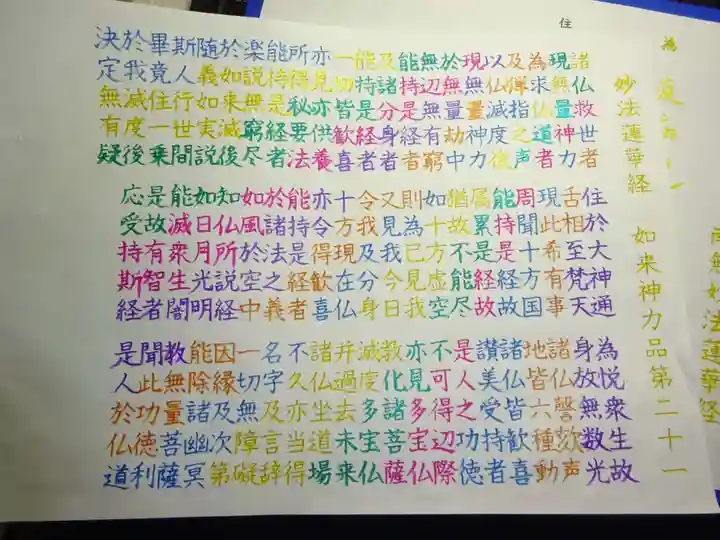 南無妙法蓮華経
妙法蓮華経 如来神力品第二十一
住
為
諸仏救世者 住於大神通 為悦衆生故
現無量神力 舌相至梵天 身放無数光
為求仏道者 現此希有事 諸仏謦欬声
及弾指之声 周聞十方国 地皆六種動
以仏滅度後 能持是経故 諸仏皆歓喜
現無量神力 属累是経故 讃美受持者
於無量劫中 猶故不能尽 是人之功徳
無辺無有窮 如十方虚空 不可得辺際
能持是経者 則為已見我 亦見多宝仏
及諸分身者 又見我今日 教化諸菩薩
能持是経者 令我及分身 滅度多宝仏
一切皆歓喜 十方現在仏 并過去未来
亦見亦供養 亦令得歓喜 諸仏坐道場
所得秘要法 能持是経者 不久亦当得
能持是経者 於諸法之義 名字及言辞
楽説無窮尽 如風於空中 一切無障礙
於如来滅後 知仏所説経 因縁及次第
随義如実説 如日月光明 能除諸幽冥
斯人行世間 能滅衆生闇 教無量菩薩
畢竟住一乗 是故有智者 聞此功徳利
於我滅度後 応受持斯経 是人於仏道
決定無有疑